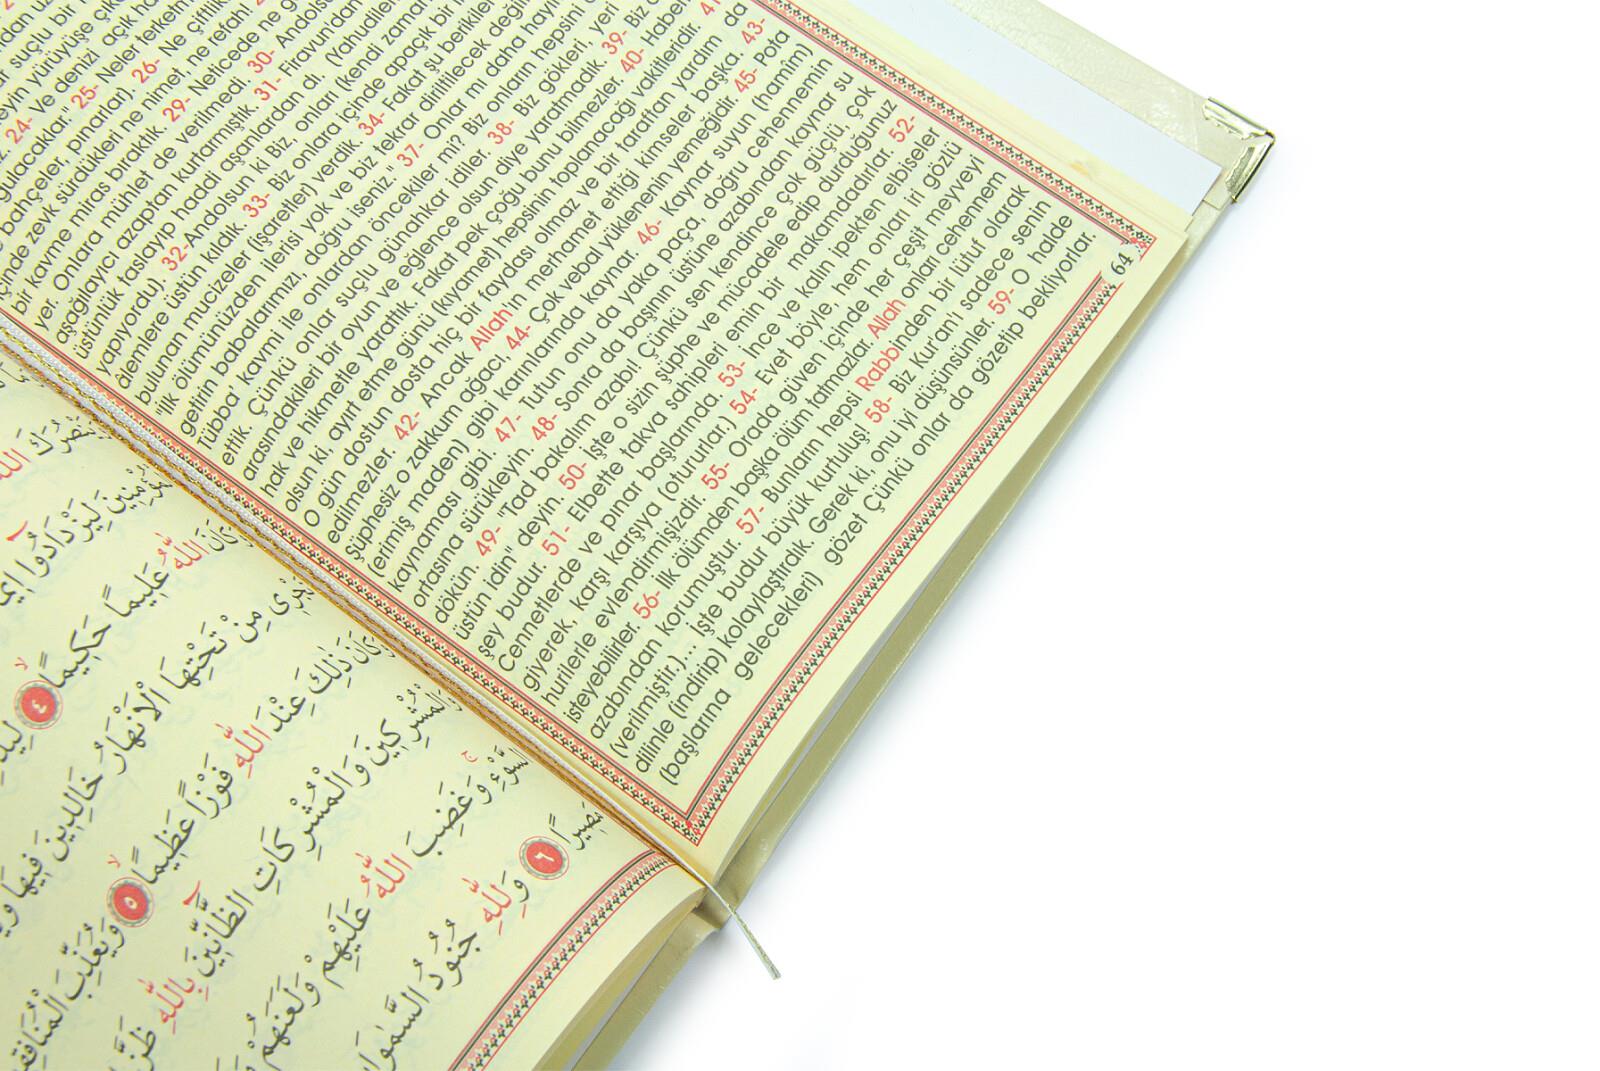 24- Ve denizi açık
25- Neler terketmi
bahçeler, pınarlar). 26- Ne çiftlik
içinde zevk sürdükleri ne nimet, ne refah!
bir kavme miras bıraktık. 29- Neticede ne gö
yer. Onlara mühlet de verilmedi. 30- Andols
aşağılayıcı azaptan kurtarmıştık. 31- Firavun'dan
üstünlük taslayıp haddi aşanlardan dı. (Yanudilerd
yapıyordu). 32-Andolsun ki Biz, onları (kendi zaman
âlemlere üstün kıldık. 33- Biz onlara içinde apaçık bir
bulunan mucizeler (işaretler) verdik. 34- Fakat şu berikiler
"İlk ölümünüzden ilerisi yok ve biz tekrar dirilitecek değil
getirin babalarımızı, doğru iseniz." 37- Onlar mı daha hayır
Tübba' kavmi ile onlardan öncekiler mi? Biz onların hepsini
ettik. Çünkü onlar suçlu günahkar idiler. 38- Biz gökleri, yeri
arasındakileri bir oyun ve eğlence olsun diye yaratmadık. 39- Biz
hak ve hikmetle yarattık. Fakat pek çoğu bunu bilmezler. 40- Haber
olsun ki, ayırt etme günü (kıyamet) hepsinin toplanacağı vakitleridir. 41-
O gün dostun dosta hiç bir faydası olmaz ve bir taraftan yardım da
edilmezler. 42- Ancak Allah'ın merhamet ettiği kimseler başka. 43-
Şüphesiz o zakkum ağacı, 44- Çok vebal yüklenenin yemeğidir. 45- Pota
(erimiş maden) gibi karınlarında kaynar. 46- Kaynar suyun (hamim)
kaynaması gibi. 47- Tutun onu da yaka paça, doğru cehennemin
ortasına sürükleyin. 48- Sonra da başının üstüne azabından kaynar su
dökün. 49- "Tad bakalım azabı! Çünkü sen kendince çok güçlü, çok
üstün idin" deyin. 50- İşte o sizin şüphe ve mücadele edip durduğunuz
şey budur. 51- Elbette takva sahipleri emin bir makamdadırlar. 52-
Cennetlerde ve pınar başlarında. 53- İnce ve kalın ipekten elbiseler
giyerek, karşı karşıya (otururlar.) 54- Evet böyle, hem onları iri gözlü
hurilerle evlendirmişizdir. 55- Orada güven içinde her çeşit meyveyi
isteyebilirler. 56- İlk ölümden başka ölüm tatmazlar. Allah onları cehennem
azabından korumuştur. 57- Bunların hepsi Rabbinden bir lütuf olarak
(verilmiştir.)... İşte budur büyük kurtuluş! 58- Biz Kur'an'ı sadece senin
dilinle (indirip) kolaylaştırdık. Gerek ki, onu iyi düşünsünler. 59- O halde
(başlarına gelecekleri) gözet Çünkü onlar da gözetip bekliyorlar.
64
اللّٰهُ عَلِيمًا حَكِيمًا ٤
تَجْرِى مِنْ تَحْتِهَا الْاَنْهَارُ خَالِدِينَ فِيهَا
وَكَانَ ذٰلِكَ عِنْدَ اللّٰهِ فَوْزًا عَظِيمًا ٥ وَيُعَذِّبَ الْمُنَافِقِ
وَالْمُشْرِكِينَ وَالْمُشْرِكَاتِ الظَّانِّينَ بِاللّٰهِ ظَنَّ
السَّوْءِ وَغَضِبَ اللّٰهُ عَلَيْهِمْ وَلَعَنَهُمْ
مَصِيرًا ٦ وَلِلّٰهِ جُنُودُ السَّمٰوَاتِ